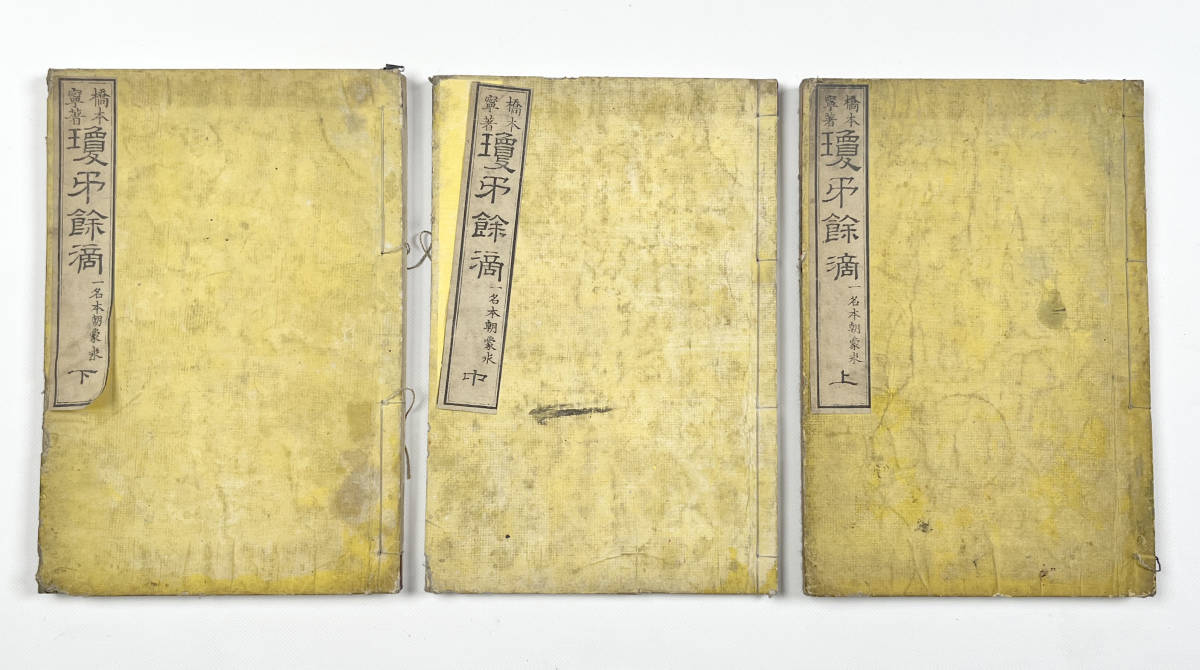 橋本
寧著
瓊矛餘滴
一名本朝蒙求
上
橋本
寧著
瓊矛餘滴
一名本朝蒙求
中
橋本
寧著
瓊矛餘滴
一名本朝蒙求
下